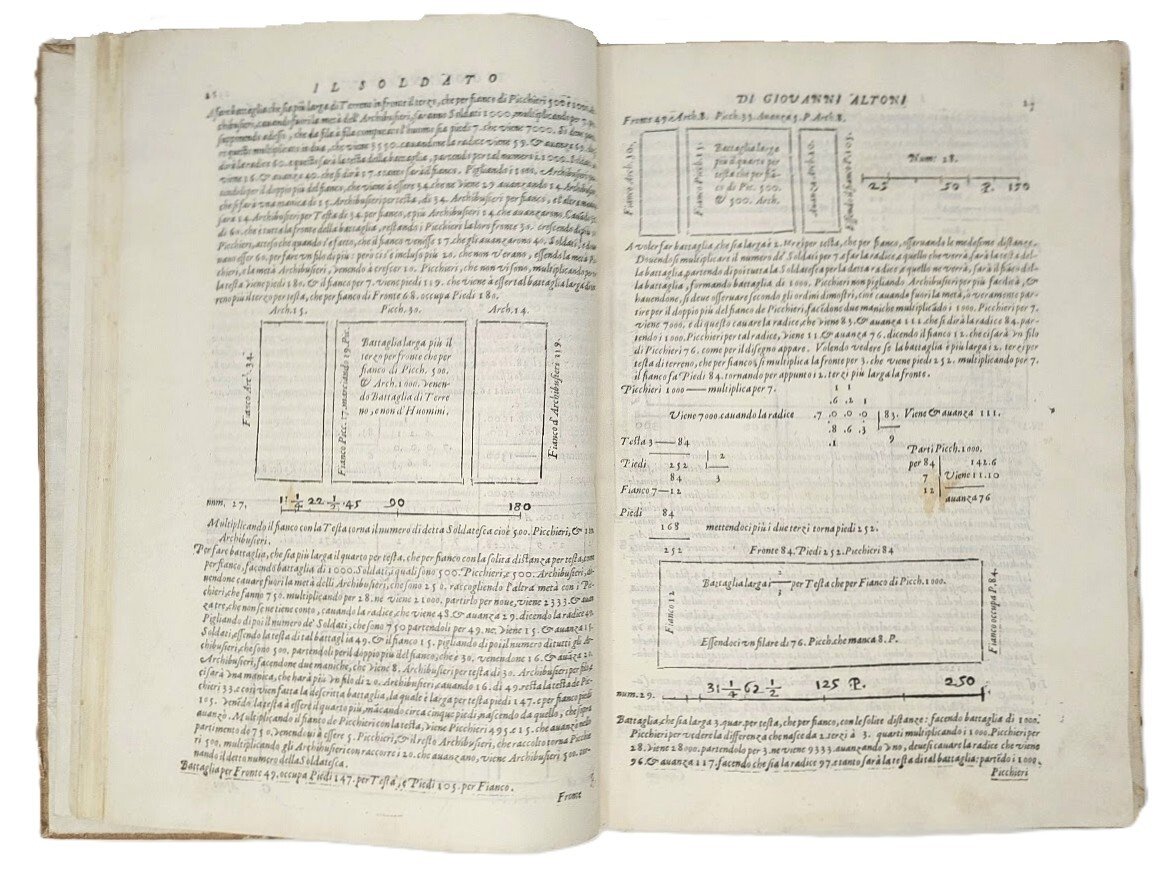 IL SOLDATO
A fare battaglia, che sia più larga di Terreno in fronte il terzo, che per fianco di Picchieri 500 e 1000.
chibusieri, cavando fuori la metà dell'Archibusieri, saranno Soldati 1000, multiplicando per 7.
supponendo adesso, che da fila à fila computato l'huomo sia piedi 7. che viene 7000.
questo multiplicato in dua, che viene 3550. cavandone la radice viene 59. & avanza 69.
radice 60. e questo sarà la testa della battaglia, partendo per tal numero i 1000. Soldati
viene 16. & avanza 40. che si dirà 17. e tanto sarà il fianco. Pigliando i 500. Archibusieri
tendoli per il doppio più del fianco, che viene à essere 34. che ne viene 29 avanzando 14. Archibusieri
che si farà una manica di 15. Archibusieri per testa, di 34. Archibusieri per fianco, e l'altra manica
sarà 14. Archibusieri per Testa di 34. per fianco, e più Archibusieri 14. che avanzarono.
di 60. che è tutta la fronte della battaglia, restando i Picchieri la loro fronte 30. crescendo di più
Picchieri, atteso che quando s'è fatto, che il fianco venisse 17. che gli avanzarono 40. Soldati,
vano esser 60. per fare un filo di più: però ci s'è incluso più 20. che non v'erano, essendo la metà
chieri, e la metà Archibusieri, venendo à crescer 10. Picchieri, che non vi sono, multiplicando per
la testa viene piedi 180. & il fianco per 7. viene piedi 119. che viene à esser tal battaglia larga di
reno più il terzo per testa, che per fianco di Fronte 68. occupa Piedi 180.
Arch. 15. Picch. 30. Arch. 14.
Fianco Arc. 34.
Fianco Picc. 17. marciando 29. Pic.
Battaglia larga più il
terzo per fronte che per
fianco di Picch. 500.
& Arch. 1000. Venen-
do Battaglia di Terre
no, e non d'Huomini.
Fianco d'Archibusieri 119.
num. 27. 11 1/4 22 1/2 45 90 180
Multiplicando il fianco con la Testa torna il numero di detta Soldatesca cioè 500. Picchieri, &
Archibusieri.
Per fare battaglia, che sia più larga il quarto per testa, che per fianco con la solita distanza per testa, come
per fianco, facendo battaglia di 1000. Soldati, i quali sono 500. Picchieri, e 500. Archibusieri,
vendone cavare fuori la metà delli Archibusieri, che sono 250. raccogliendo l'altra metà con i Pic-
chieri, che fanno 750. multiplicando per 28. ne viene 21000. partirlo per nove, viene 2333. & avan
za tre, che non se ne tiene conto, cavando la radice, che viene 48. & avanza 29. dicendo la radice 49.
Pigliando di poi il numero de' Soldati, che sono 750 partendoli per 49. ne viene 15. & avanza 15.
Soldati, essendo la testa di tal battaglia 49. & il fianco 15. pigliando di poi il numero di tutti gli Ar-
chibusieri, che sono 500. partendoli per il doppio più del fianco, che è 30. venendone 16. & avanza 20.
Archibusieri, facendone due maniche, che viene 8. Archibusieri per testa di 30. Archibusieri per fianco
cisarà una manica, che harà più un filo di 20. Archibusieri, cavando 16. di 49. resta la testa de Pic-
chieri 33. e così vien fatta la descritta battaglia, la quale è larga per testa piedi 147. e per fianco piedi
105. venendo la testa à essere il quarto più, mancando circa cinque piedi, nascendo da quello, che sopra
avanzò. Multiplicando il fianco de Picchieri con la testa, viene Picchieri 495 e 15. che avanzò nello
partimento da 750. venendovi à essere 5. Picchieri, & il resto Archibusieri, che raccolto torna Picchie
ri 500. multiplicando gli Archibusieri con raccorre i 20. che avanzano, viene Archibusieri 500. tor-
nando il detto numero della Soldatesca.
Battaglia per Fronte 49. occupa Piedi 147. per Testa, e Piedi 105. per Fianco.
Fronte
DI GIOVANNI ALTONI 27
Fronte 49. e Arch. 8. Picch. 33. Avanza 5. P. Arch. 8.
Fianco Arch. 30.
Fianco Picch. 15.
Battaglia larga
più il quarto per
testa che per fiā-
co di Pic. 500.
& 500. Arch.
Avanza Arch. 20.
Essendo il fianco P. 105.
Num: 28.
25 50 P. 150
A voler far battaglia, che sia larga i 2. terzi per testa, che per fianco, osservando le medesime distanze.
Dovendosi multiplicare il numero de' Soldati per 7 a far la radice a quello che verrà, sarà la testa del-
la battaglia, partendo di poi tutta la Soldatesca per la detta radice a quello ne verrà, sarà il fianco del-
la battaglia, formando battaglia di 1000. Picchieri non pigliando Archibusieri per più facilità, &
havendone, si deve osservare secondo gli ordini dimostri, cioè cavando fuori la metà, o veramente par-
tire per il doppio più del fianco de Picchieri, facendone due maniche multiplicādo i 1000. Picchieri per 7.
viene 7000. e di questo cavare la radice, che viene 83. & avanza 111. che si dirà la radice 84. par-
tendo i 1000. Picchieri per tal radice, viene 11. & avanza 76. dicendo il fianco 12. che ci sarà un filo
di Picchieri 76. come per il disegno appare. Volendo vedere se la battaglia è più larga i 2. terzi per
testa di terreno, che per fianco, si multiplica la fronte per 3. che viene piedi 252. multiplicando per 7.
il fianco fa Piedi 84. tornando per appunto i 2. terzi più larga la fronte.
Picchieri 1000 — multiplica per 7.
1 1
.6 .2 1
Viene 7000. cavando la radice .7 .0 .0 .0 | 83. Viene & avanza 111.
.8 .6 .3 9
.1
Testa 3 — 84
Piedi 252 | 2
84 3
Fianco 7 — 12
Piedi 84
168 mettendoci più i due terzi torna piedi 252.
252
Parti Picch. 1000.
per 84 142.6
7 Viene 11.10
12 avanza 76
Fronte 84. Piedi 252. Picchieri 84
Fianco 12
Battaglia larga i 2/3 per Testa che per Fianco di Picch. 1000.
Essendoci un filare di 76. Picch. che manca 8. P.
Fianco occupa P. 84.
num. 29. 31 1/4 62 1/2 125 P. 250
Battaglia, che sia larga 3. quar. per testa, che per fianco, con le solite distanze: facendo battaglia di 1000.
Picchieri per vedere la differenza che nasce da 2. terzi à 3. quarti multiplicando i 1000. Picchieri per
28. viene 28000. partendolo per 3. ne viene 9333. avanzando uno, devesi cavare la radice che viene
96. & avanza 117. facendo che sia la radice 97. e tanto sarà la testa di tal battaglia: partēdo i 1000.
Picchieri